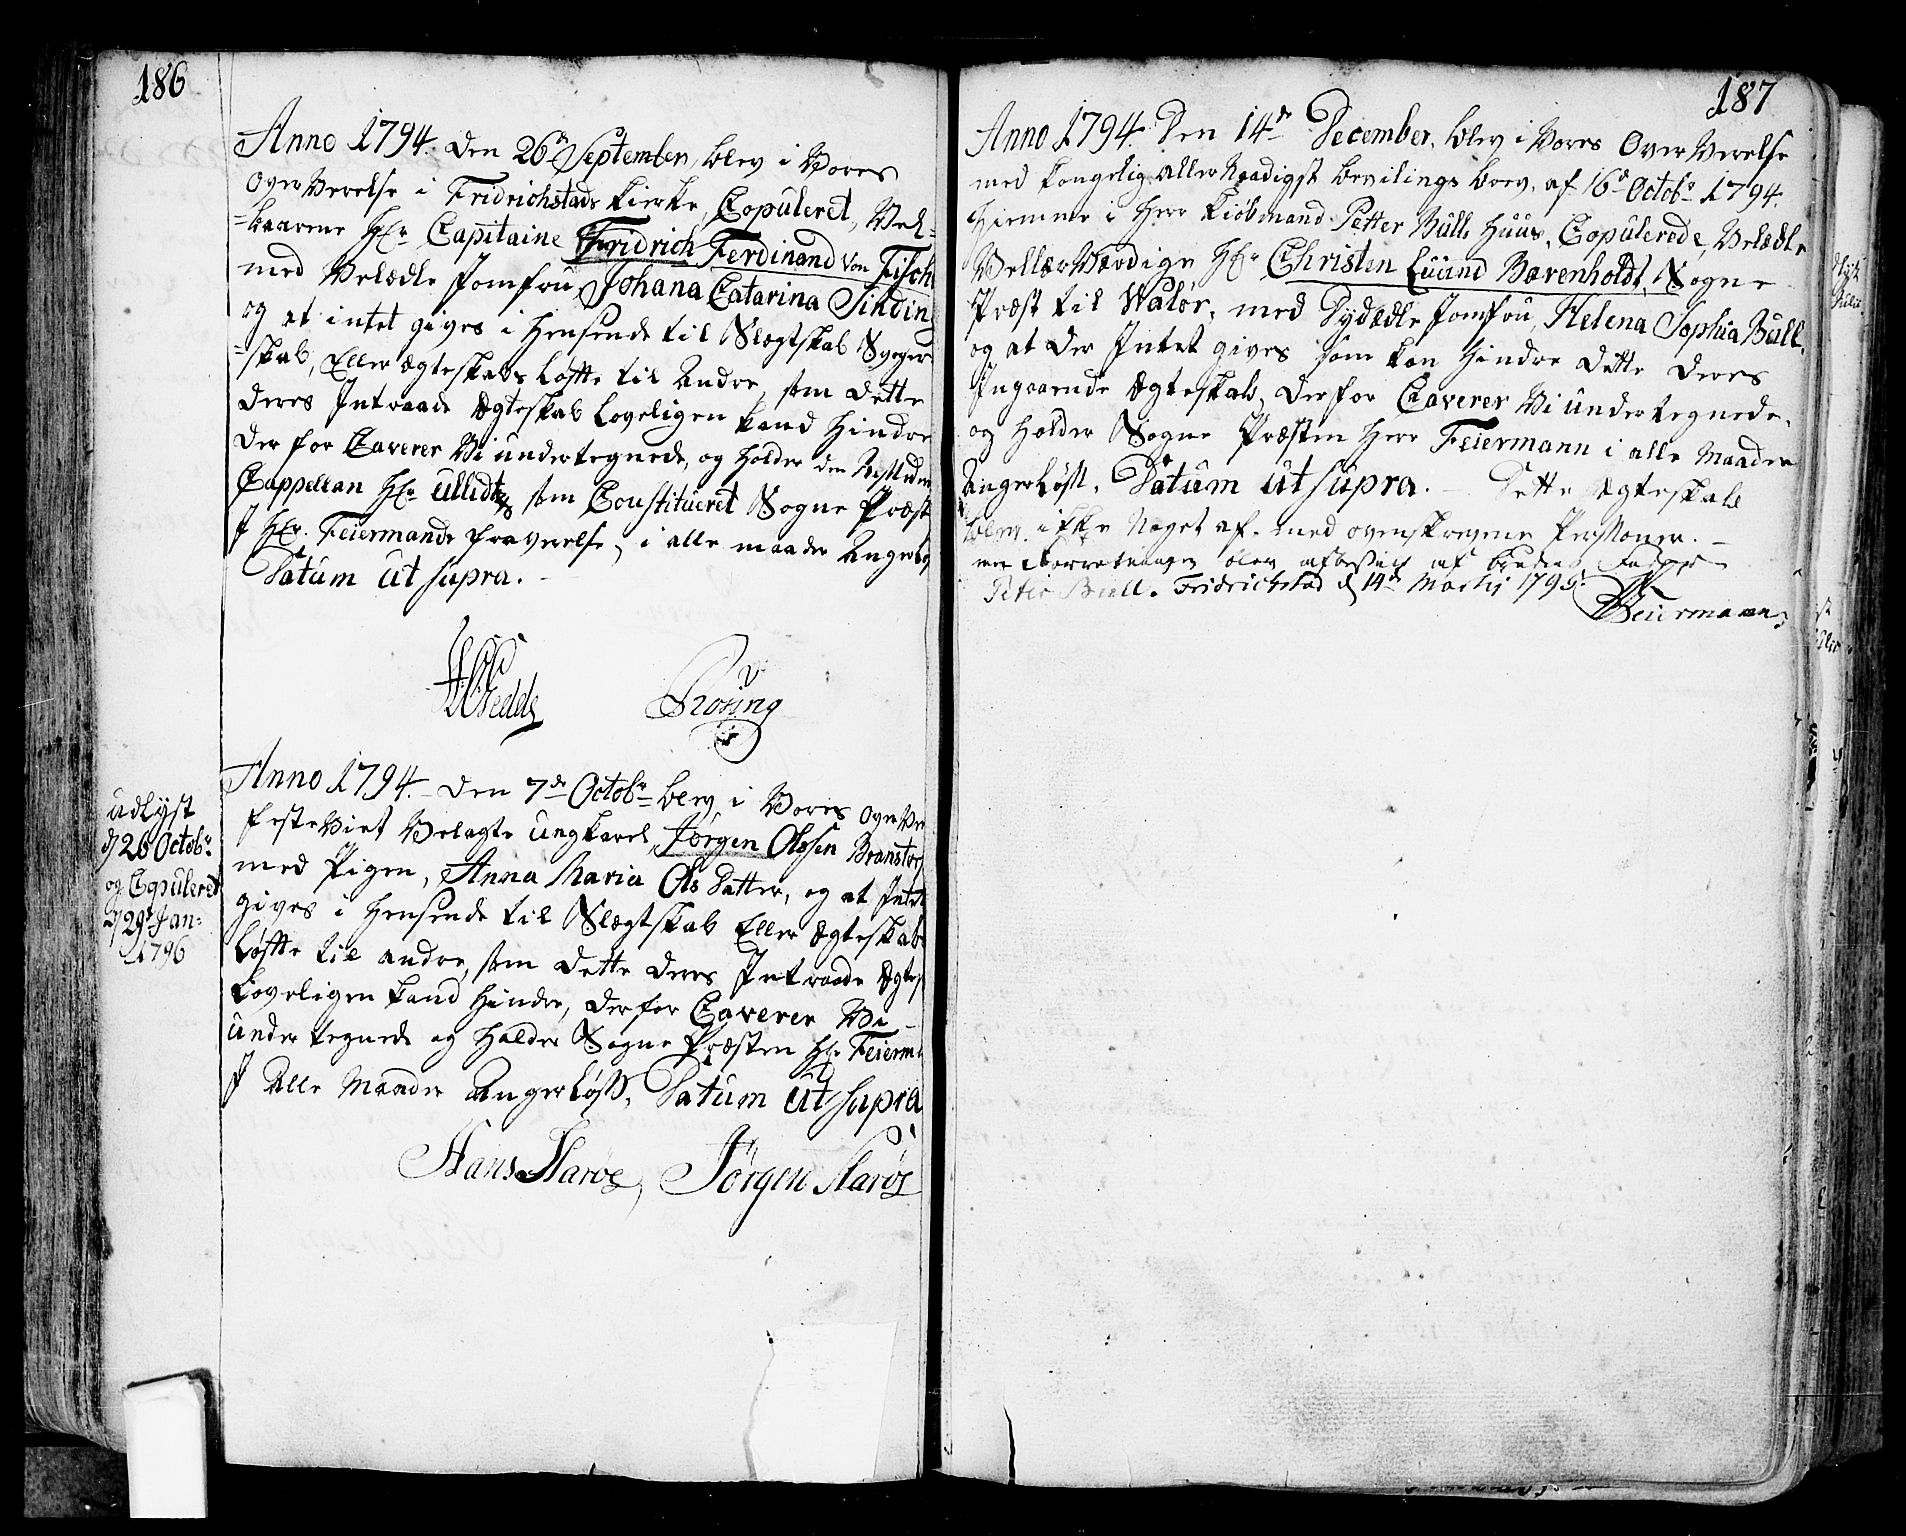 186
Anno 1794. den 26de September, blev i Vores
OverVerelse i Fridrichstads Kierke, Copuleret, Vel-
-baarene Hr. Capitaine Fridrich Ferdinand von Fisch
med Velædle Jomfru, Johana Catarina Sinding
og at intet gives i Hensende til Slægtskab Svoger
-skab, Eller Ægteskabs Løfte til Andre, som dette
deres Intraade Ægteskab Loveligen kand Hindre
der for Caverer Vi undertegnede, og Holder den
Cappellan Hr. som Constitueret Sogne Præst
I Hr. Feiermands fraverelse, i alle maader Angerløs
Datum ut supra.
Rosing
Anno 1794. den 7de Octobr. blev i Vores OverVe
festeViet Velagte Ungkarl, Jørgen Olssen
med Pigen, Anna Maria Ols Datter, og at Intet
gives i Hensende til Slægtskab Eller Ægteskabs
Løfte til andre, som dette deres Intraade Ægtes
Loveligen kand Hindre, derfor Caverer Vi
undertegnede og Holder Sogne Præsten Hr. Feierm
I Alle Maader AngerLøss, Datum ut supra
Udlyst
d 26 Octobr.
og Copuleret
d 29de Jan:
1796
Hans Narøe, Jørgen Narøe
187
Anno 1794. Den 14de December, blev i Vores OverVerelse
med kongelig Aller Naadigst bevilings brev, af 16de Octobr. 1794.
Hiemme i Herr Kiøbmand Petter Bulls Huus, Copulerede, Velædle
VellærVærdige Hr. Christen Luund Barenholdt, Sogne
Præst til Walør, med Dydædle Jomfru, Helena Sophia Bull,
og at der Intet gives som kan Hindre dette deres
Ingaaende Ægteskab, derfor Caverer Vi undertegnede,
og Holder Sogne Præsten Herr Feiermann i alle Maader
AngerLøss, Datum ut supra. Dette Ægteskab
blev ikke Noget af med ovenskrevne Personer.
blev af Fader
Peter Bull. Fridrichstad d 14de Martij 1795.
Feiermann